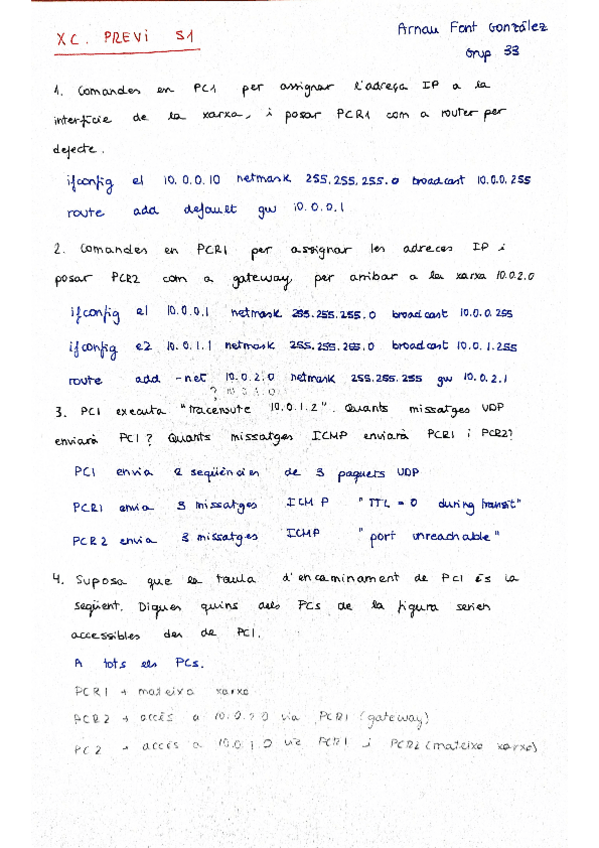 XC. PREVI S1
Arnau Font González
Grup 33
1. Comandes en PC1 per assignar l'adreça IP a la
interfície de la xarxa, i posar PCR1 com a router per
defecte.
ifconfig e1 10.0.0.10 netmask 255.255.255.0 broadcast 10.0.0.255
route add default gw 10.0.0.1
2. Comandes en PCR1 per assignar les adreces IP i
posar PCR2 com a gateway, per arribar a la xarxa 10.0.2.0
ifconfig e1 10.0.0.1 netmask 255.255.255.0 broadcast 10.0.0.255
ifconfig e2 10.0.1.1 netmask 255.255.255.0 broadcast 10.0.1.255
route add -net 10.0.2.0 netmask 255.255.255 gw 10.0.2.1
?
3. PC1 executa "traceroute 10.0.1.2". Quants missatges UDP
enviarà PC1? Quants missatges ICMP enviarà PCR1 i PCR2?
PC1 envia 2 seqüències de 3 paquets UDP
PCR1 envia 3 missatges ICMP "TTL=0 during transit"
PCR2 envia 3 missatges ICMP "port unreachable"
4. Suposa que la taula d'encaminament de PC1 és la
següent. Digues quins dels PCs de la figura serien
accessibles des de PC1.
A tots els PCs.
PCR1 → mateixa xarxa
PCR2 → accés a 10.0.2.0 via PCR1 (gateway)
PC2 → accés a 10.0.1.0 via PCR1 i PCR2 (mateixa xarxa)